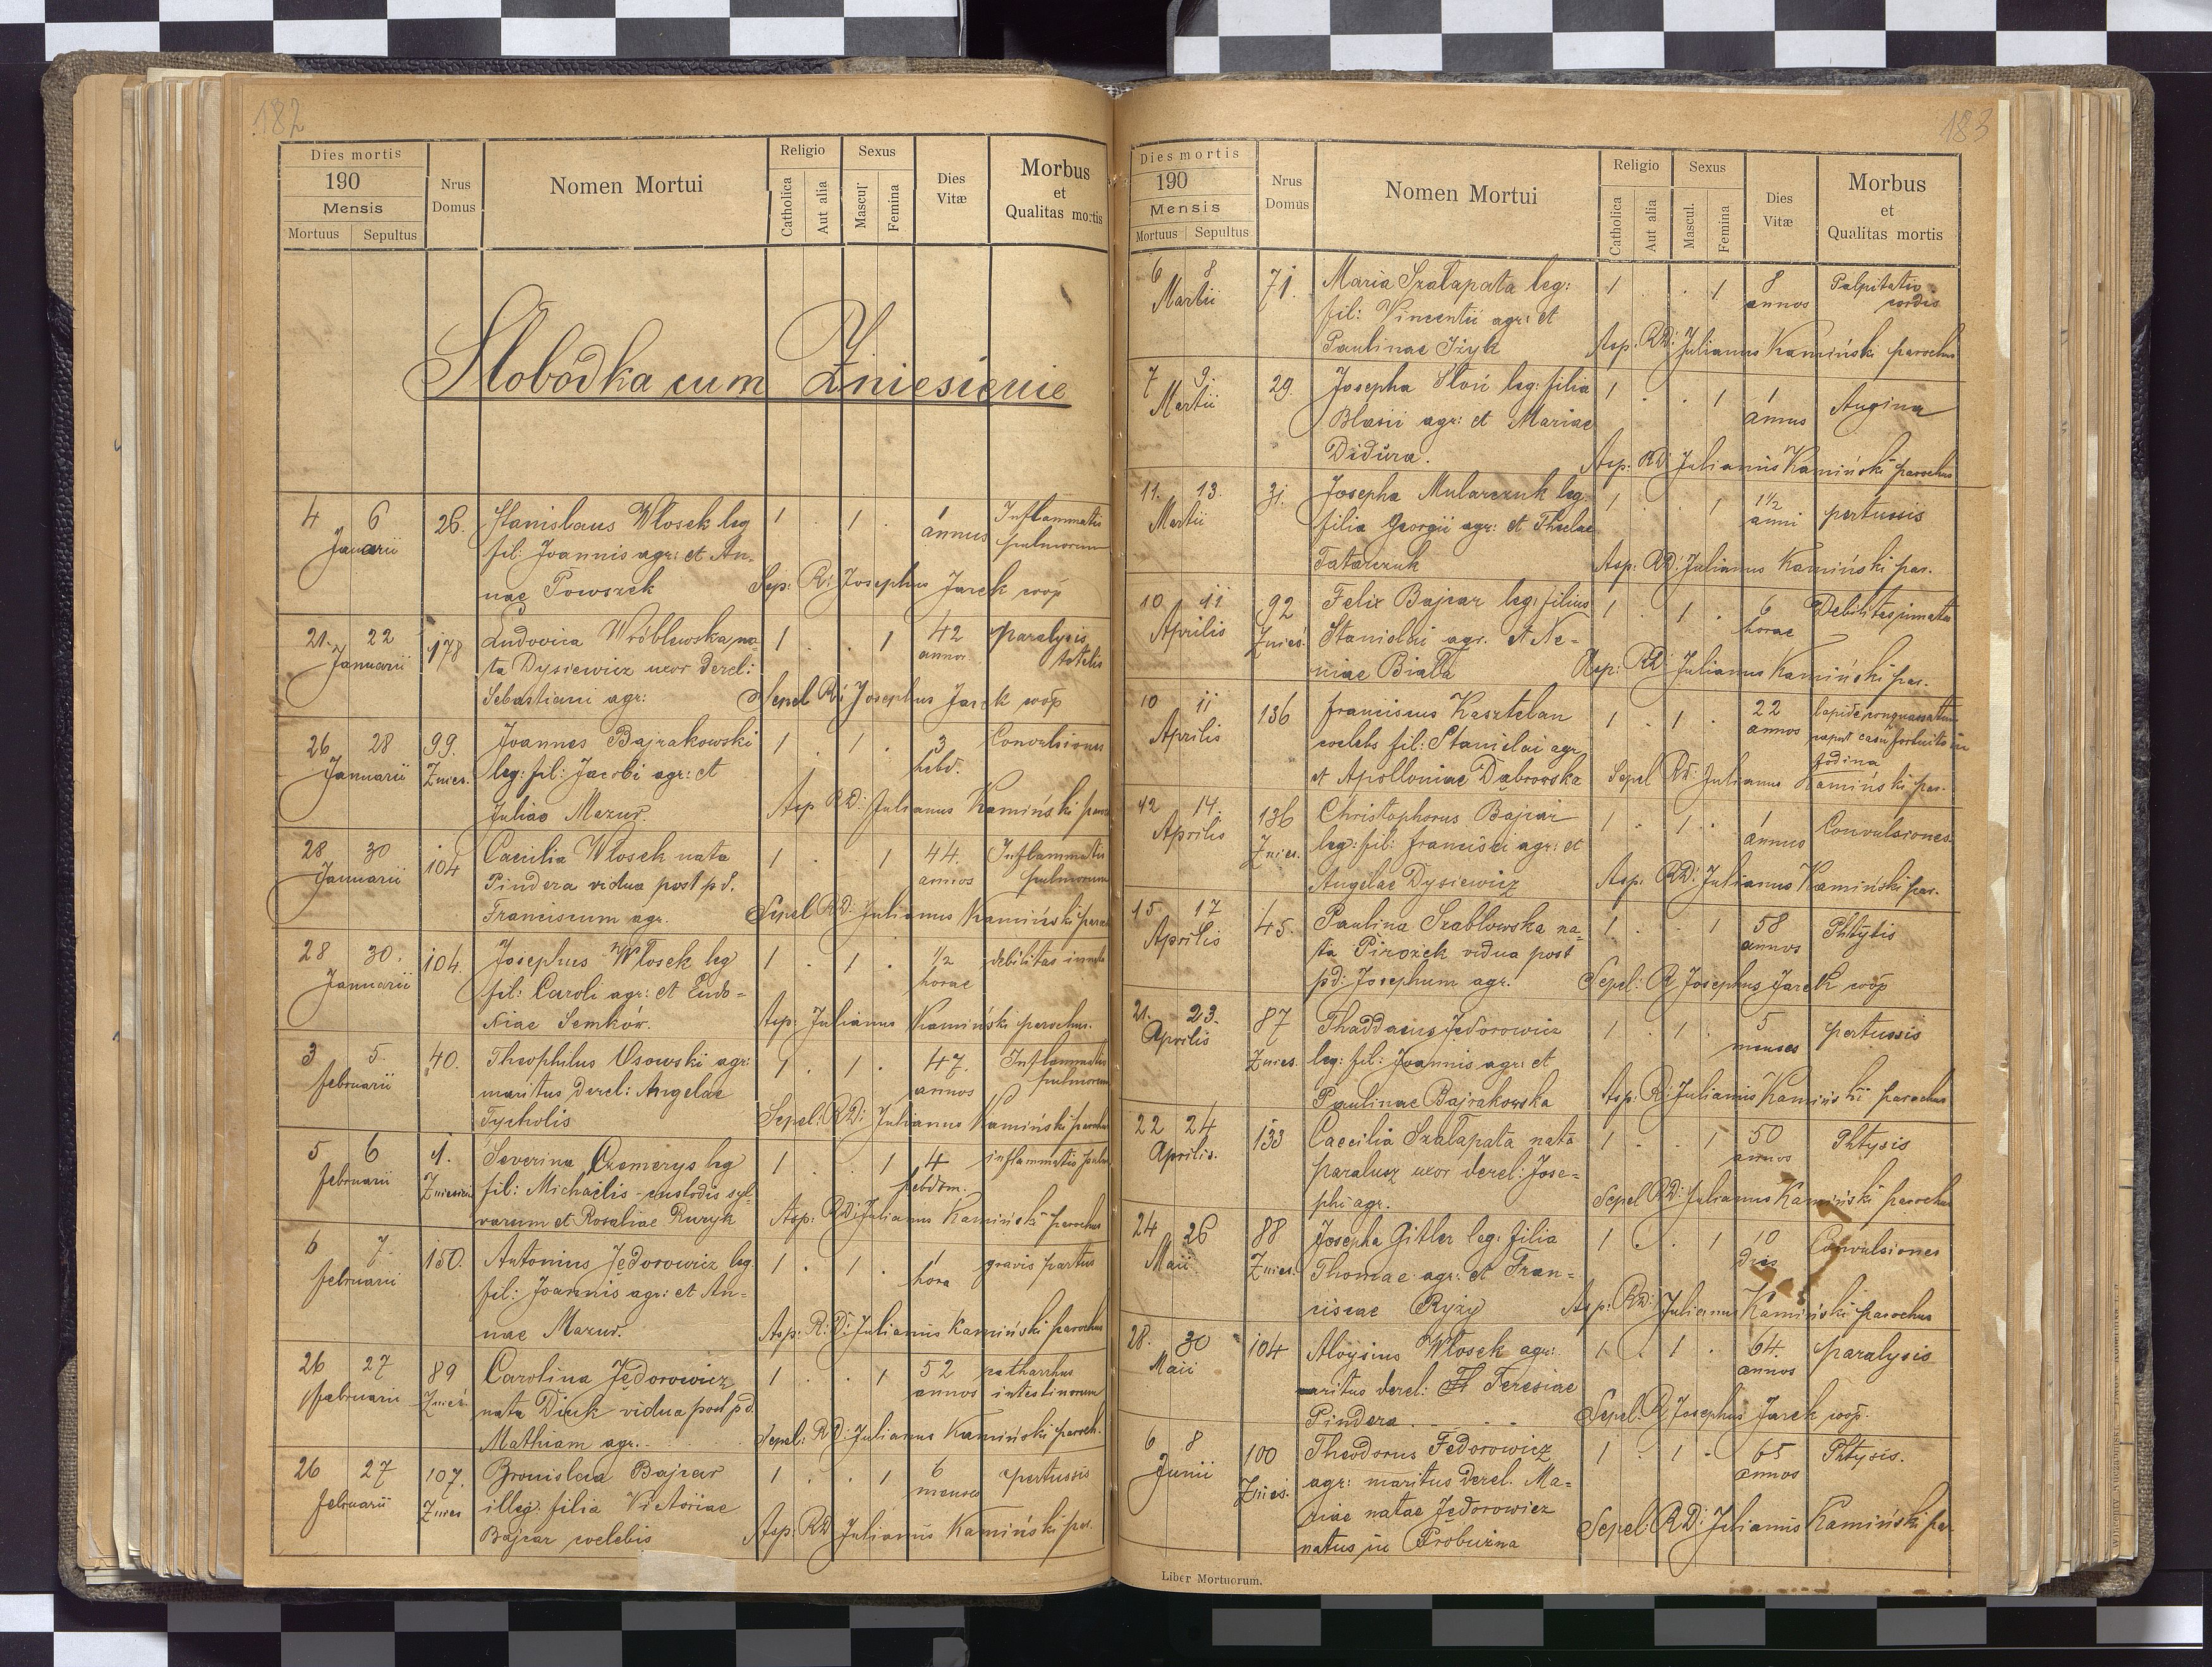 182
Dies mortis
190
Mensis
Mortuus Sepultus
Nrus Domus
Nomen Mortui
Religio
Catholica
Aut alia
Sexus
Mascul.
Femina
Dies Vitæ
Morbus et Qualitas mortis
Slobodka cum Zniesienie
4 6 26. Stanislaus Włosek leg 1 . 1 . 1 Inflammatio
Januarii fil: Joannis agr: et An- annus pulmonum
nae Powszek Sep: R: Josephus Jarek coop
21. 22 178 Ludovica Wróblewska na- 1 . . 1 42 paralysis
Januarii ta Dysiewicz uxor derel: annos totalis
Sebastiani agr: Sepel R: Josephus Jarek coop
26 28 99. Joannes Bajrakowski 1 . 1 . 3 Convulsiones
Januarii Znies. leg: fil: Jacobi agr: et hebd.
Juliae Mazur. Asp RD: Julianus Kamiński paro
28 30 104 Caecilia Włosek nata 1 . 1 44. Inflammatio
Januarii Pindera vidua post pd. annos pulmonum
Franciscum agr. Sepel RD: Julianus Kamiński paro
28 30. 104. Josephus Włosek leg 1 . 1 . 1/2 debilitas innata
Januarii fil: Caroli agr: et Eudo- horae
xiae Semków. Asp: Julianus Kamiński parochus.
3 5 40. Theophilus Osowski agr: 1 . 1 . 47. Inflammatio
februarii maritus derel: Angelae annos pulmonum
Tycholis Sepel: RD: Julianus Kamiński parochus
5 6 1. Severina Czemerys leg 1 . . 1 4 inflammatio pulm
februarii Zniesien fil: Michaelis - custodis syl- hebdom.
varum et Rosaliae Ruryk Asp: RD: Julianus Kamiński parochus
6 7. 150. Antonius Jędorowicz leg. 1 . 1 . 1 gravis partus
februarii fil: Joannis agr: et An- hora
nae Mazur. Asp: R: D: Julianus Kamiński parochus
26 27 89 Carolina Jędorowicz 1 . . 1 52 catharrhus
februarii Znies. nata Diuk vidua post pd. annos intestinorum
Mathiam agr. Sepel: RD: Julianus Kamiński paroch.
26 27 107. Bronislava Bajcar 1 . . 1 6 pertussis
februarii Znies illeg. filia Victoriae menses
Bajcar coelebis Asp: RD Julianus Kamiński par.
183
Dies mortis
190
Mensis
Mortuus Sepultus
Nrus Domus
Nomen Mortui
Religio
Catholica
Aut alia
Sexus
Mascul.
Femina
Dies Vitæ
Morbus et Qualitas mortis
6 8 71. Maria Szałapata leg: 1 . . 1 8 Palpitatio
Martii fil: Vincentii agr: et annos cordis
Paulinae Iżyk Asp: RD: Julianus Kamiński parochus
7 9. 29. Josepha Słoń leg: filia 1 . . 1 1 Angina
Martii Blasii agr: et Mariae annus
Didura. Asp: RD: Julianus Kamiński parochus
11. 13. 31. Josepha Mularczuk leg. 1 . . 1 1 1/2 pertussis
Martii filia Georgii agr: et Theclae anni
Tatarczuk Asp: RD: Julianus Kamiński par.
10 11 92 Felix Bajcar leg: filius 1 . 1 . 6 Debilitas innata
Aprilis Znies. Stanislai agr. et Xe- horae
niae Biała Asp: RD: Julianus Kamiński par.
10 11 136 Franciscus Kasztelan 1 . 1 . 22 lapide conquassatum
Aprilis coelebs fil: Stanislai agr annos caput casu fortuito in
et Apolloniae Dąbrowska fodina
Sepel RD: Julianus Kamiński par.
12 14. 136 Christophorus Bajcar 1 . 1 . 1 Convulsiones
Aprilis Znies. leg: fil: Francisci agr: et annus
Angelae Dysiewicz Asp: RD: Julianus Kamiński par.
15 17 45. Paulina Szabłowska na- 1 . . 1 58 Phtysis
Aprilis ta Pirożek vidua post annos
pd: Josephum agr. Sepel: R Josephus Jarek coop
21. 23. 87 Thaddaeus Jędorowicz 1 . 1 . 5 pertussis
Aprilis Znies. leg: fil: Joannis agr: et menses
Paulinae Bajrakowska Asp: R: Julianus Kamiński parochus
22 24 133 Caecilia Szałapata nata 1 . . 1 50 Phtysis
Aprilis. Paralusz uxor derel: Jose- annos
phi agr. Sepel RD: Julianus Kamiński parochus
24 26 88 Josepha Gitler leg: filia 1 . . 1 10 Convulsiones
Maii Znies. Thomae agr: et Fran- dies
ciscae Ryży Asp: RD: Julianus Kamiński parochus
28. 30 104 Aloysius Włosek agr: 1 . 1 . 64. paralysis
Maii maritus derel: Teresiae annos
Pindera Sepel: R Josephus Jarek coop.
6 8 100 Theodorus Fedorowicz 1 . 1 . 65 Phtysis.
Junii Znies. agr: maritus derel. Ma- annos
riae natae Jędorowicz
natus in Probużna Sepel: RD: Julianus Kamiński par
Liber Mortuorum.